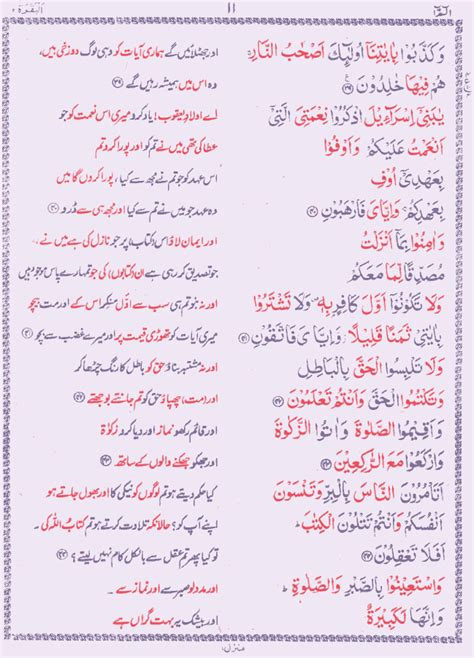 الٓمّٓ ١
١١
البقرة ٢
وَكَذَّبُوْا بِاٰيٰتِنَاۤ اُولٰٓئِكَ اَصْحٰبُ النَّارِ ۚ
هُمْ فِيْهَا خٰلِدُوْنَ ﴿۳۹﴾
يٰبَنِيْۤ اِسْرَآءِيْلَ اذْكُرُوْا نِعْمَتِيَ الَّتِيْۤ
اَنْعَمْتُ عَلَيْكُمْ وَاَوْفُوْا
بِعَهْدِيْۤ اُوْفِ
بِعَهْدِكُمْ ۚ وَاِيَّايَ فَارْهَبُوْنِ ﴿۴۰﴾
وَاٰمِنُوْا بِمَاۤ اَنْزَلْتُ
مُصَدِّقًا لِّمَا مَعَكُمْ
وَلَا تَكُوْنُوْۤا اَوَّلَ كَافِرٍۭ بِهٖ ۪ وَلَا تَشْتَرُوْا
بِاٰيٰتِيْ ثَمَنًا قَلِيْلًا ۫ وَّاِيَّايَ فَاتَّقُوْنِ ﴿۴۱﴾
وَلَا تَلْبِسُوا الْحَقَّ بِالْبَاطِلِ
وَتَكْتُمُوا الْحَقَّ وَاَنْتُمْ تَعْلَمُوْنَ ﴿۴۲﴾
وَاَقِيْمُوا الصَّلٰوةَ وَاٰتُوا الزَّكٰوةَ
وَارْكَعُوْا مَعَ الرّٰكِعِيْنَ ﴿۴۳﴾
اَتَاْمُرُوْنَ النَّاسَ بِالْبِرِّ وَتَنْسَوْنَ
اَنْفُسَكُمْ وَاَنْتُمْ تَتْلُوْنَ الْكِتٰبَ ؕ
اَفَلَا تَعْقِلُوْنَ ﴿۴۴﴾
وَاسْتَعِيْنُوْا بِالصَّبْرِ وَالصَّلٰوةِ ؕ
وَاِنَّهَا لَكَبِيْرَةٌ
اور جھٹلائیں گے ہماری آیات کو وہی لوگ دوزخی ہیں،
وہ اس میں ہمیشہ رہیں گے ﴿۳۹﴾
اے اولادِ یعقوب! یاد کرو میری اس نعمت کو جو
عطا کی تھی میں نے تم کو اور پورا کرو تم
اس عہد کو جو تم نے مجھ سے کیا، پورا کروں گا میں
وہ عہد جو میں نے تم سے کیا، اور مجھ ہی سے ڈرو ﴿۴۰﴾
اور ایمان لاؤ اس (کتاب) پر جو نازل کی ہے میں نے،
جو تصدیق کر رہی ہے ان (کتابوں) کی جو تمہارے پاس موجود ہیں
اور نہ بنو تم ہی سب سے اوّل منکر اس کے اور مت بیچو
میری آیات کو تھوڑی قیمت پر اور میرے غضب سے بچو ﴿۴۱﴾
اور نہ مشتبہ بناؤ حق کو باطل کا رنگ چڑھا کر
اور (مت) چھپاؤ حق کو تم جانتے بوجھتے ﴿۴۲﴾
اور قائم رکھو نماز اور ادا کرو زکوٰۃ
اور جھکو جھکنے والوں کے ساتھ ﴿۴۳﴾
کیا حکم دیتے ہو تم لوگوں کو نیکی کا اور بھول جاتے ہو
اپنے آپ کو؟ حالانکہ تلاوت کرتے ہو تم کتابُ اللہ کی
تو کیا پھر تم عقل سے بالکل کام نہیں لیتے؟ ﴿۴۴﴾
اور مدد لو صبر سے اور نماز سے۔
اور بیشک یہ بہت گراں ہے
منزل ۱